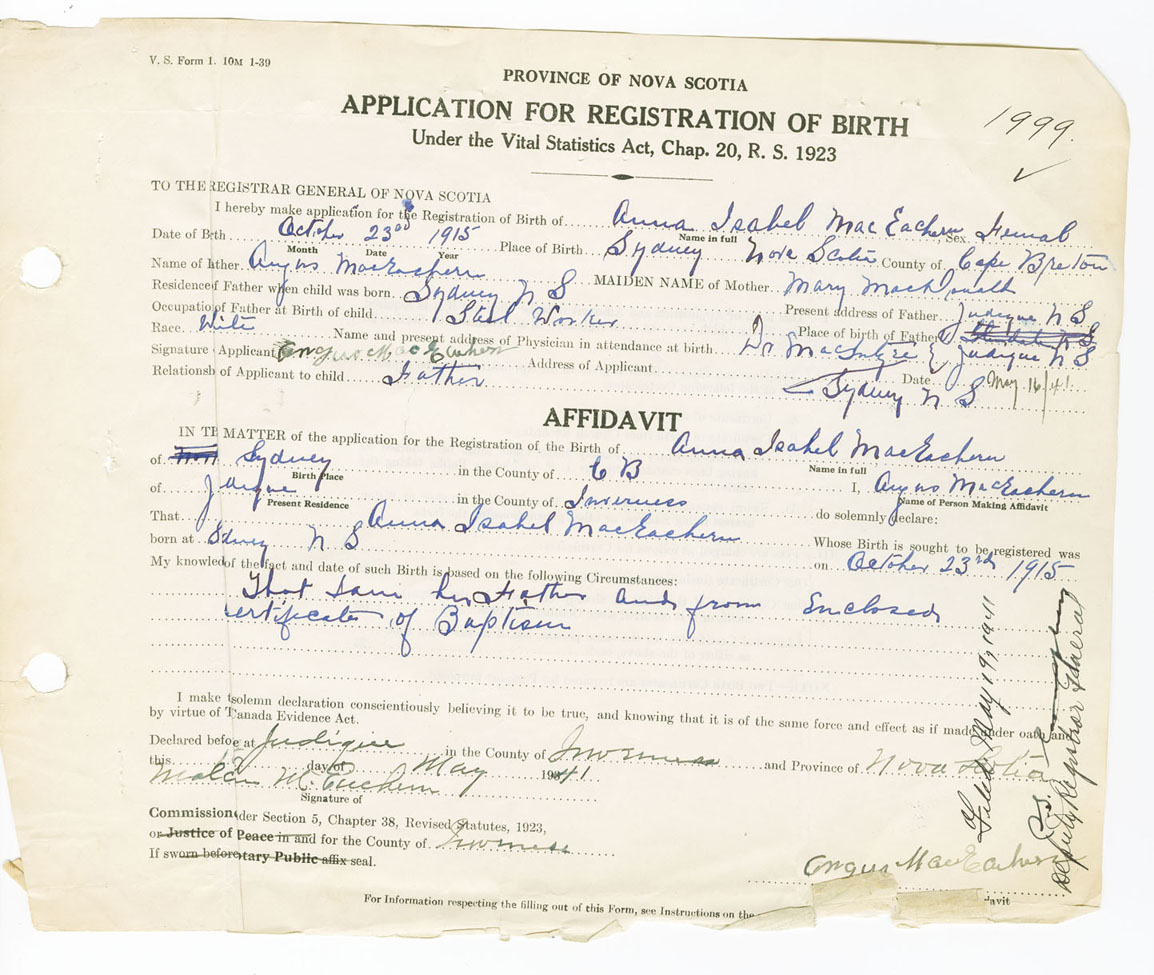 V. S. Form 1. 10M 1-39
PROVINCE OF NOVA SCOTIA
APPLICATION FOR REGISTRATION OF BIRTH
1999.
Under the Vital Statistics Act, Chap. 20, R. S. 1923
TO THE REGISTRAR GENERAL OF NOVA SCOTIA
I hereby make application for the Registration of Birth of Anna Isabel MacEachern Sex Femal
Name in full
Date of Bth October 23rd 1915 Place of Birth Sydney Nova Scotia County of Cape Breton
Month Date Year
Name of ather Angus MacEachern MAIDEN NAME of Mother Mary MacDonald
Residence f Father when child was born. Sydney N S Present address of Father Judique N S
Occupatio of Father at Birth of child. Steel Worker Place of birth of Father Judique N S
Race. Wite Name and present address of Physician in attendance at birth Dr MacIntyre
Signature Applicant Angus MacEachern Address of Applicant Sydney N S Date May 16/41
Relationsh of Applicant to child Father
AFFIDAVIT
IN TE MATTER of the application for the Registration of the Birth of Anna Isabel MacEachern
Name in full
of Sydney in the County of C B I, Angus MacEachern
Birth Place Name of Person Making Affidavit
of Judique in the County of Inverness do solemnly declare:
Present Residence
That Anna Isabel MacEachern Whose Birth is sought to be registered was
born at Sdney N S on October 23rd 1915
My knowled of the fact and date of such Birth is based on the following Circumstances:
That I am her Father and from Enclosed
certificate of Baptism
I make solemn declaration conscientiously believing it to be true, and knowing that it is of the same force and effect as if made under oath and
by virtue of Canada Evidence Act.
Declared befoe at Judique in the County of Inverness and Province of Nova Scotia
this day of May 1941.
Signature of
Commission der Section 5, Chapter 38, Revised Statutes, 1923,
or Justice of Peace in and for the County of Inverness
If sworn before tary Public affix seal.
Angus MacEachern
davit
For Information respecting the filling out of this Form, see Instructions on the
Filed May 19, 1941
Deputy Registrar General